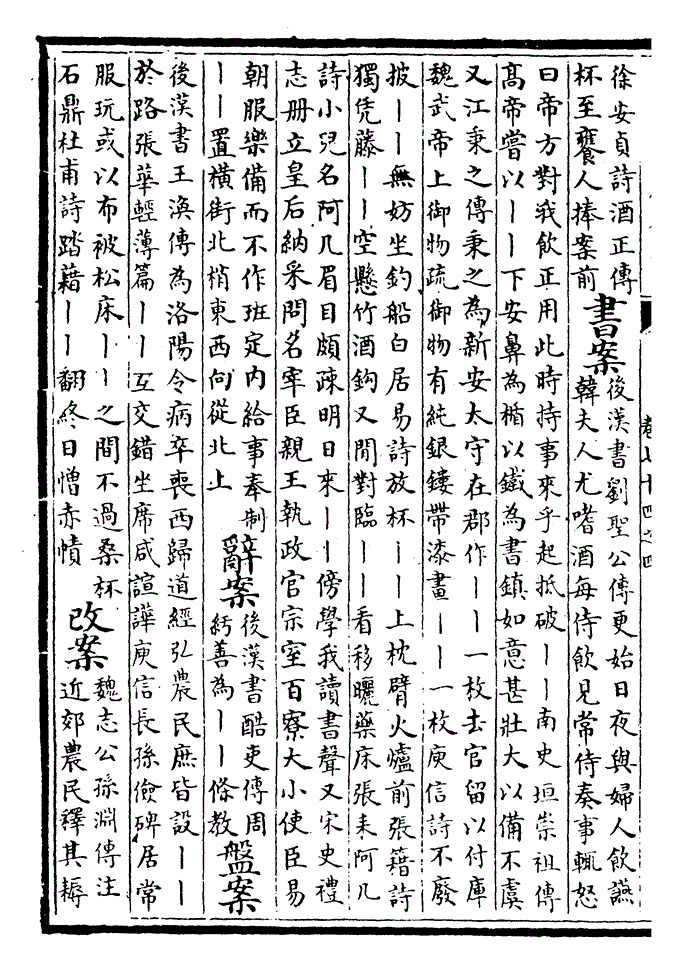 卷七十四之四
徐安貞詩酒正傳
杯至饔人捧案前
書案
後漢書劉聖公傳更始日夜與婦人飲讌
韓夫人尤嗜酒每侍飲見常侍奏事輒怒
曰帝方對我飲正用此時持事來乎起抵破丨丨南史垣崇祖傳
高帝嘗以丨丨下安鼻為楯以鐵為書鎮如意甚壯大以備不虞
又江秉之傳秉之為新安太守在郡作丨丨一枚去官留以付庫
魏武帝上御物疏御物有純銀鏤帶漆畫丨丨一枚庾信詩不廢
披丨丨無妨坐釣船白居易詩放杯丨丨上枕臂火爐前張籍詩
獨凭藤丨丨空懸竹酒鉤又閒對臨丨丨看移曬藥床張耒阿几
詩小兒名阿几眉目頗疎明日來丨丨傍學我讀書聲又宋史禮
志册立皇后納采問名宰臣親王執政官宗室百寮大小使臣易
朝服樂備而不作班定内給事奉制
丨丨置橫街北梢東西向從北上
辭案
後漢書酷吏傳周
紆善為丨丨條教
盤案
後漢書王渙傳為洛陽令病卒喪西歸道經弘農民庶皆設丨丨
於路張華輕薄篇丨丨互交錯坐席咸諠譁庾信長孫儉碑居常
服玩或以布被松床丨丨之間不過桑杯
石鼎杜甫詩踏藉丨丨翻終日憎赤幘
改案
魏志公孫淵傳注
近郊農民釋其耨